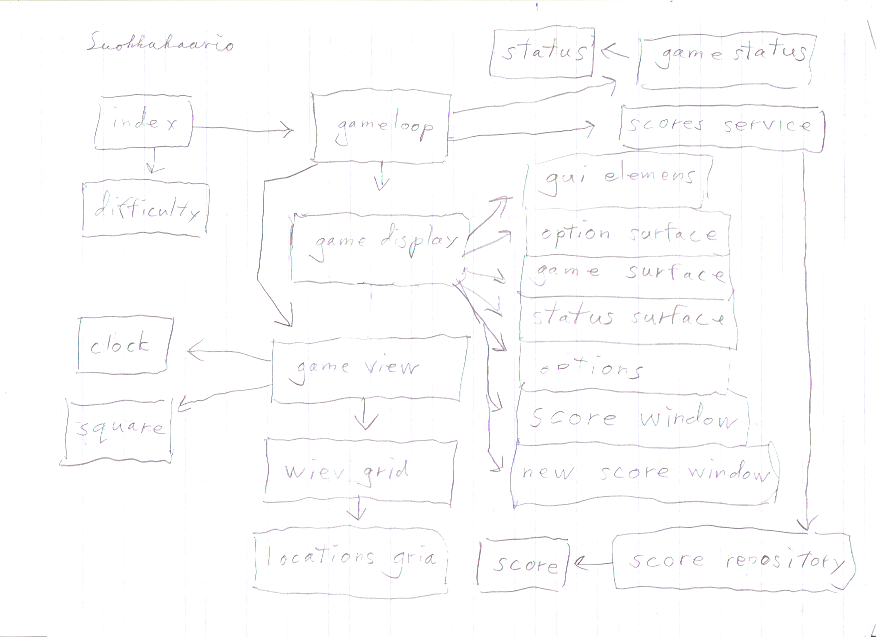 Suohkahaario
status
game status
index
gameloop
scores service
difficulty
gui elemens
game display
option surface
game surface
status surface
clock
game view
options
square
score window
wiev grid
new score window
locations grid
score
score repository